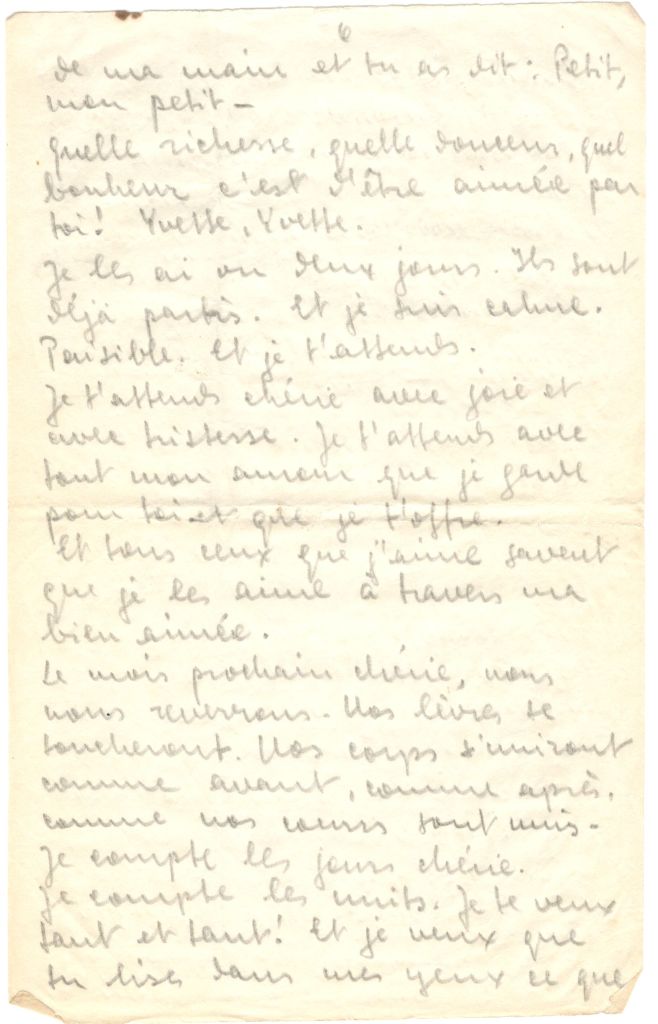 6
de ma main et tu as dit : Petit,
mon petit –
quelle richesse, quelle douceur, quel
bonheur c'est d'être aimée par
toi! Yvette, Yvette.
Je les ai vu deux jours. Ils sont
déjà partis. Et je suis calme.
Paisible. Et je t'attends.
Je t'attends chérie avec joie et
avec tristesse. Je t'attends avec
tout mon amour que je garde
pour toi et que je t'offre.
Et tous ceux que j'aime savent
que je les aime à travers ma
bien aimée.
Le mois prochain chérie, nous
nous reverrons. Nos lèvres se
toucheront. Nos corps s'uniront
comme avant, comme après,
comme nos cœurs sont unis –
Je compte les jours chérie.
Je compte les nuits. Je te veux
tant et tant! Et je veux que
tu lises dans mes yeux ce que